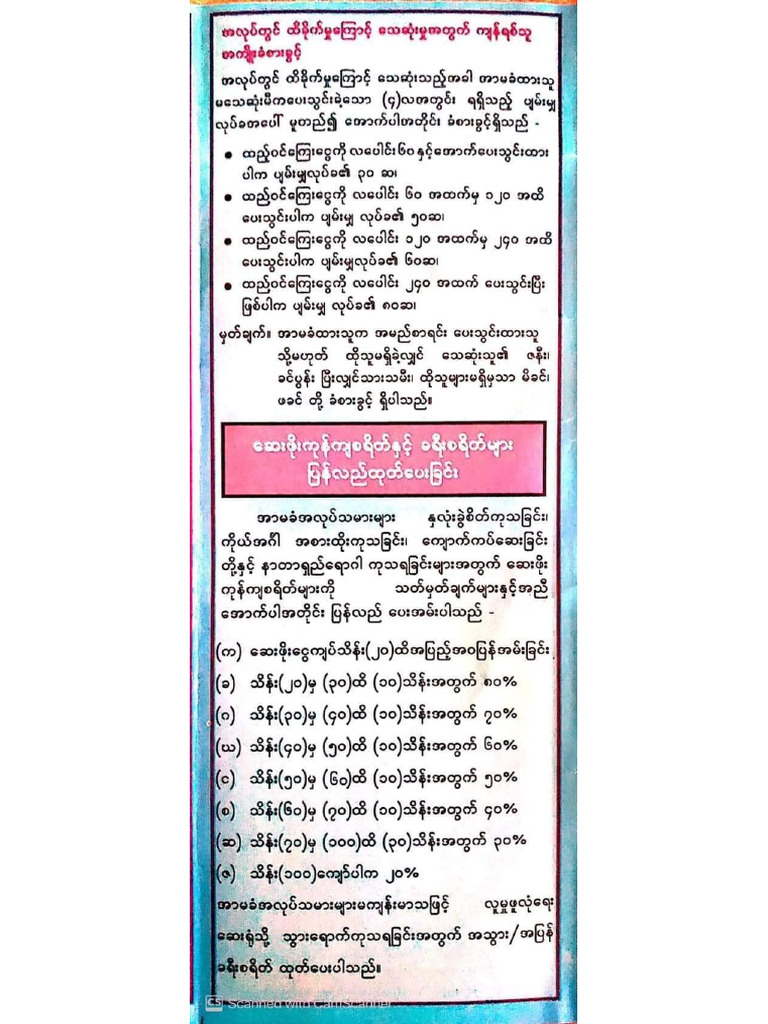 အလုပ်တွင် ထိခိုက်မှုကြောင့် သေဆုံးမှုအတွက် ကျန်ရစ်သူ
အကျိုးခံစားခွင့်
အလုပ်တွင် ထိခိုက်မှုကြောင့် သေဆုံးသည့်အခါ အာမခံထားသူ
မသေဆုံးမီကပေးသွင်းခဲ့သော (၄)လအတွင်း ရရှိသည့် ပျမ်းမျှ
လုပ်ခအပေါ် မူတည်၍ အောက်ပါအတိုင်း ခံစားခွင့်ရှိသည် -
• ထည့်ဝင်ကြေးငွေကို လပေါင်း၆၀နှင့်အောက်ပေးသွင်းထား
ပါက ပျမ်းမျှလုပ်ခ၏ ၃၀ ဆ၊
• ထည့်ဝင်ကြေးငွေကို လပေါင်း ၆၀ အထက်မှ ၁၂၀ အထိ
ပေးသွင်းပါက ပျမ်းမျှ လုပ်ခ၏ ၅၀ဆ၊
• ထည့်ဝင်ကြေးငွေကို လပေါင်း ၁၂၀ အထက်မှ ၂၄၀ အထိ
ပေးသွင်းပါက ပျမ်းမျှလုပ်ခ၏ ၆၀ဆ၊
• ထည့်ဝင်ကြေးငွေကို လပေါင်း ၂၄၀ အထက် ပေးသွင်းပြီး
ဖြစ်ပါက ပျမ်းမျှ လုပ်ခ၏ ၈၀ဆ၊
မှတ်ချက်။ အာမခံထားသူက အမည်စာရင်း ပေးသွင်းထားသူ
သို့မဟုတ် ထိုသူမရှိခဲ့လျှင် သေဆုံးသူ၏ ဇနီး၊
ခင်ပွန်း ပြီးလျှင်သားသမီး၊ ထိုသူများမရှိမှသာ မိခင်၊
ဖခင် တို့ ခံစားခွင့် ရှိပါသည်။
ဆေးဖိုးကုန်ကျစရိတ်နှင့် ခရီးစရိတ်များ
ပြန်လည်ထုတ်ပေးခြင်း
အာမခံအလုပ်သမားများ နှလုံးခွဲစိတ်ကုသခြင်း၊
ကိုယ်အင်္ဂါ အစားထိုးကုသခြင်း၊ ကျောက်ကပ်ဆေးခြင်း
တို့နှင့် နာတာရှည်ရောဂါ ကုသရခြင်းများအတွက် ဆေးဖိုး
ကုန်ကျစရိတ်များကို သတ်မှတ်ချက်များနှင့်အညီ
အောက်ပါအတိုင်း ပြန်လည် ပေးအမ်းပါသည် -
(က) ဆေးဖိုးငွေကျပ်သိန်း(၂၀)ထိအပြည့်အဝပြန်အမ်းခြင်း
(ခ) သိန်း(၂၀)မှ (၃၀)ထိ (၁၀)သိန်းအတွက် ၈၀%
(ဂ) သိန်း(၃၀)မှ (၄၀)ထိ (၁၀)သိန်းအတွက် ၇၀%
(ဃ) သိန်း(၄၀)မှ (၅၀)ထိ (၁၀)သိန်းအတွက် ၆၀%
(င) သိန်း(၅၀)မှ (၆၀)ထိ (၁၀)သိန်းအတွက် ၅၀%
(စ) သိန်း(၆၀)မှ (၇၀)ထိ (၁၀)သိန်းအတွက် ၄၀%
(ဆ) သိန်း(၇၀)မှ (၁၀၀)ထိ (၃၀)သိန်းအတွက် ၃၀%
(ဇ) သိန်း(၁၀၀)ကျော်ပါက ၂၀%
အာမခံအလုပ်သမားများမကျန်းမာသဖြင့် လူမှုဖူလုံရေး
ဆေးရုံသို့ သွားရောက်ကုသရခြင်းအတွက် အသွား/အပြန်
ခရီးစရိတ် ထုတ်ပေးပါသည်။
CS Scanned with CamScanner